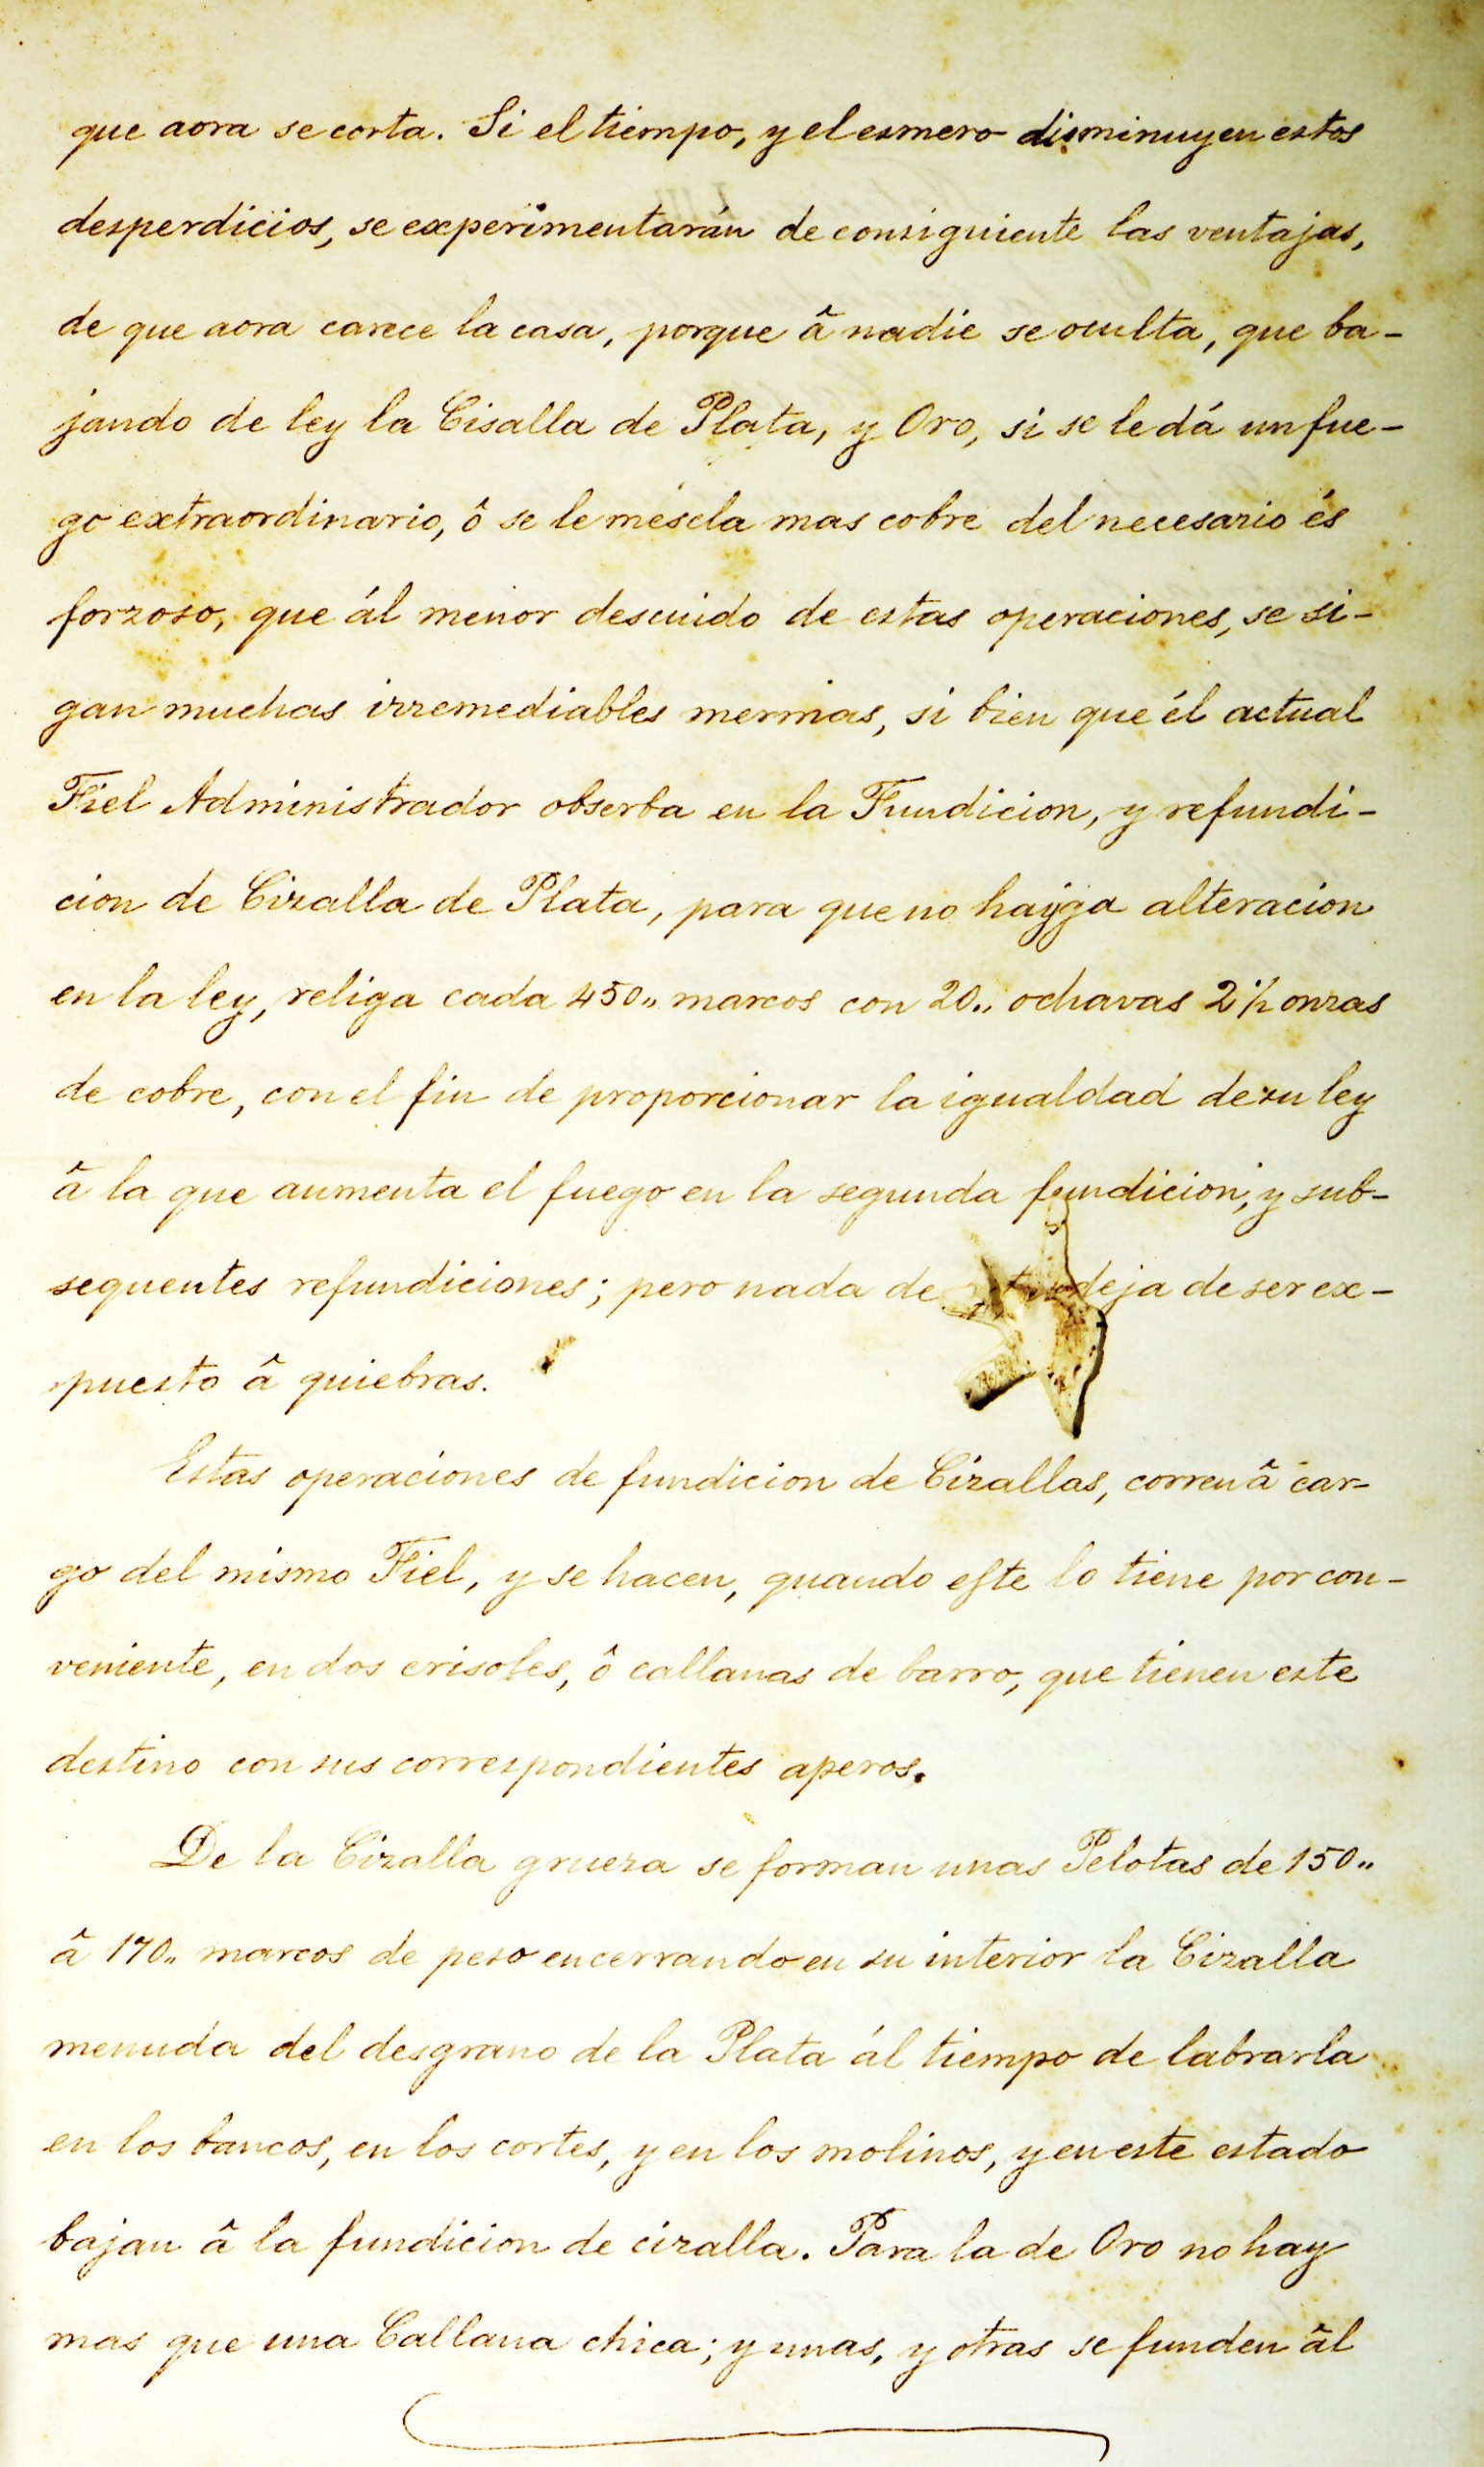 que aora se corta. Si el tiempo, y el esmero disminuyen estos
desperdicios, se experimentarán de consiguiente las ventajas,
de que aora carece la casa, porque â nadie se oculta, que ba-
jando de ley la Cisalla de Plata, y Oro, si se le dá un fue-
go extraordinario, ô se le mescla mas cobre del necesario és
forzoso, que ál menor descuido de estas operaciones, se si-
gan muchas irremediables mermas, si bien que él actual
Fiel Administrador obserba en la Fundicion, y refundi-
cion de Cizalla de Plata, para que no hayga alteracion
en la ley, religa cada 450,, marcos con 20,, ochavas 2 1/2 onzas
de cobre, con el fin de proporcionar la igualdad de su ley
â la que aumenta el fuego en la segunda fundicion, y sub-
sequentes refundiciones; pero nada de deja de ser ex-
puesto â quiebras.
Estas operaciones de fundicion de Cizallas, corren â car-
go del mismo Fiel, y se hacen, quando este lo tiene por con-
veniente, en dos crisoles, ô callanas de barro, que tienen este
destino con sus correspondientes aperos.
De la Cizalla grueza se forman unas Pelotas de 150,,
â 170,, marcos de peso encerrando en su interior la Cizalla
menuda del desgrano de la Plata ál tiempo de labrarla
en los bancos, en los cortes, y en los molinos, y en este estado
bajan â la fundicion de cizalla. Para la de Oro no hay
mas que una Callana chica; y unas, y otras se funden âl